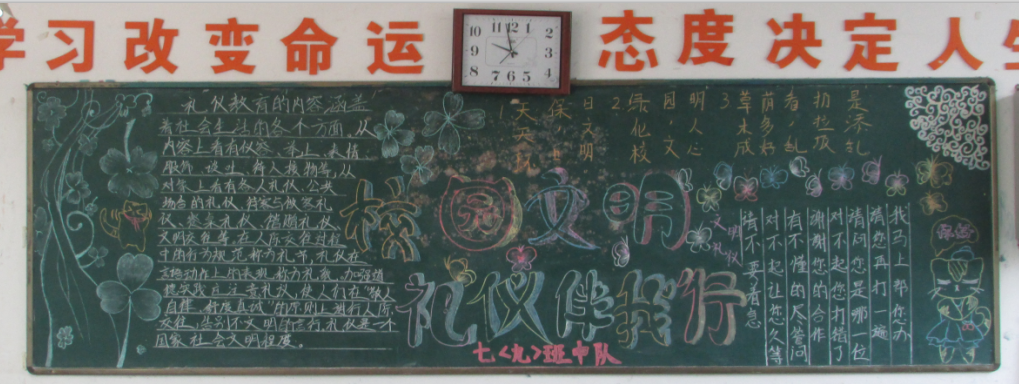 学习改变命运
态度决定人生
礼仪教育的内容涵盖
着社会生活的各个方面,从
内容上看有仪容、举止、表情、
服饰、谈吐、待人接物等,从
对象上看有个人礼仪、公共
场合的礼仪、待客与做客礼
仪、餐桌礼仪、馈赠礼仪、
文明交往等。在人际交往过程
中的行为规范称为礼节,礼仪在
言语动作上的表现称为礼貌。加强道
德实践应注意礼仪,使人们在“敬人
自律、适度真诚”的原则上进行人际
交往,告别不文明的言行。礼仪是一个
国家社会文明程度
校园文明
礼仪伴我行
七〈九〉班中队
文明礼仪
请不要着急
对不起让您久等
有不懂的尽管问
谢谢您的合作
对不起您打错了
请问您是哪一位
请您再打一遍
我马上帮你办